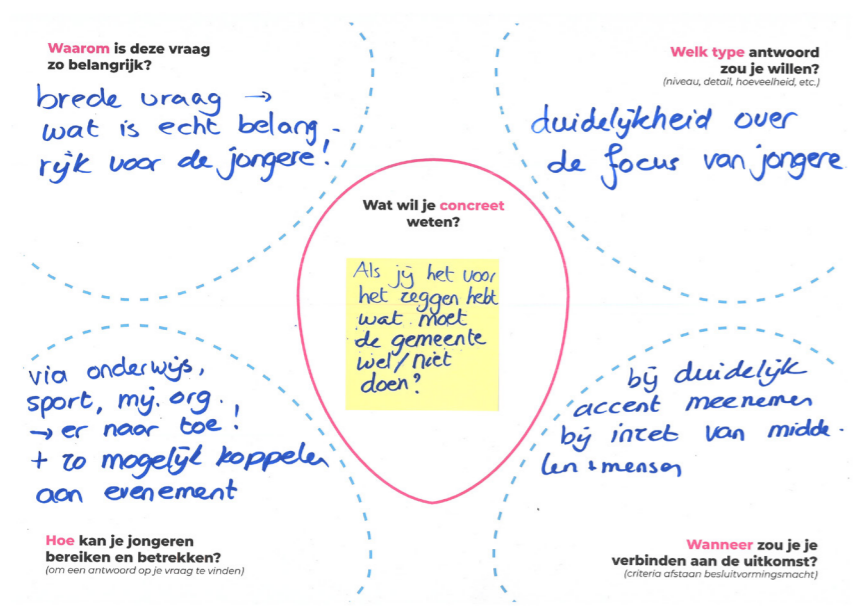 Waarom is deze vraag
zo belangrijk?
brede vraag →
wat is echt belang-
rijk voor de jongere!
Welk type antwoord
zou je willen?
(niveau, detail, hoeveelheid, etc.)
duidelijkheid over
de focus van jongere
Wat wil je concreet
weten?
Als jij het voor
het zeggen hebt
wat moet
de gemeente
wel/niet
doen?
via onderwijs,
sport, mij. org.
→ er naar toe!
+ zo mogelijk koppelen
aan evenement
Hoe kan je jongeren
bereiken en betrekken?
(om een antwoord op je vraag te vinden)
bij duidelijk
accent meenemen
bij inzet van midde-
len + mensen
Wanneer zou je je
verbinden aan de uitkomst?
(criteria afstaan besluitvormingsmacht)